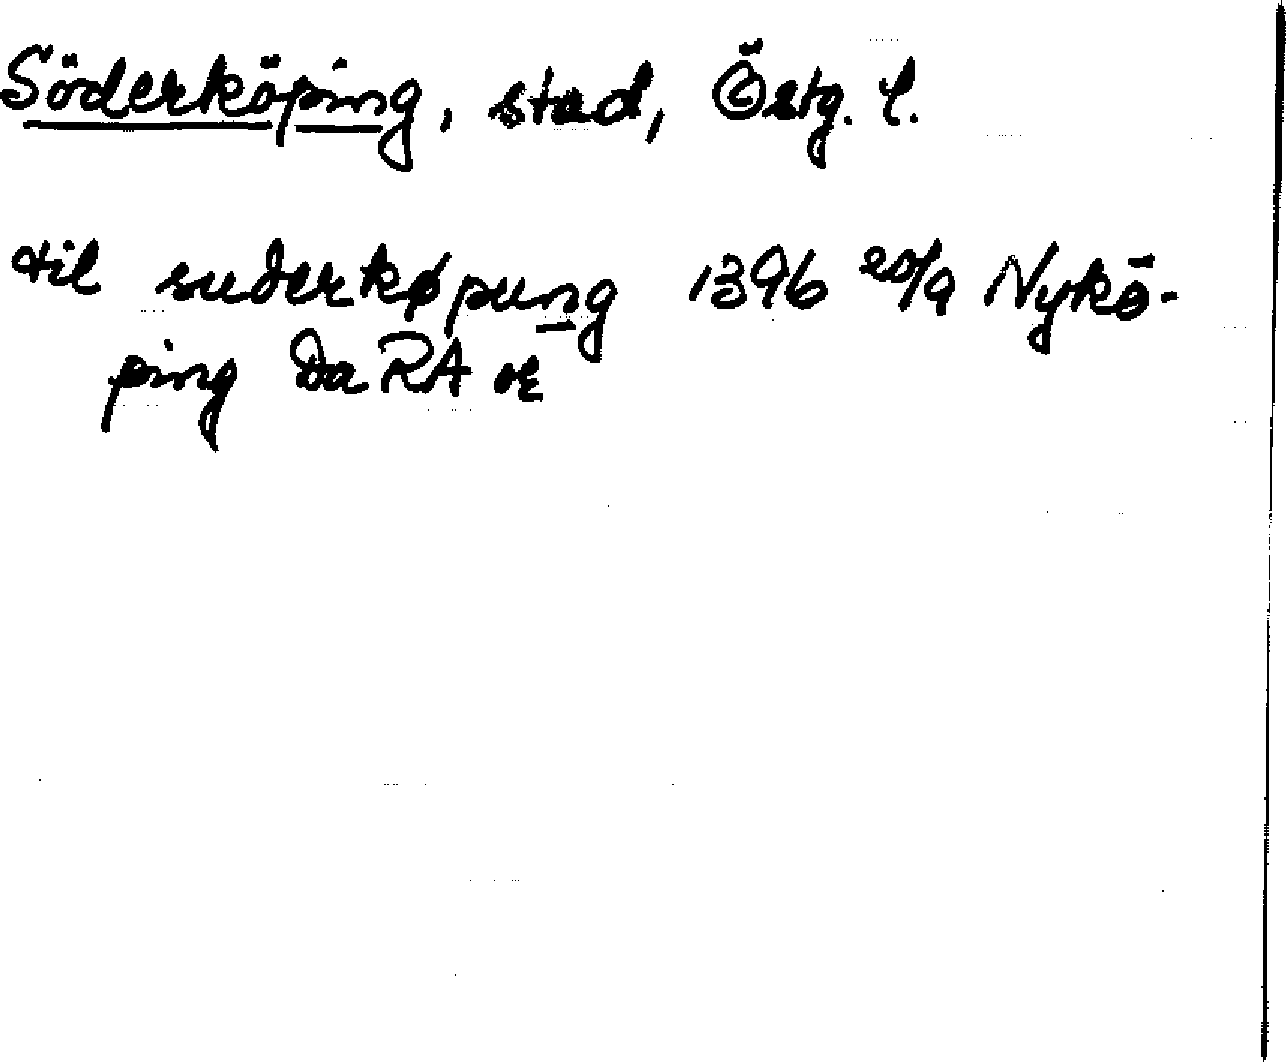 Söderköping, stad, Östg. l.
til suderkøpung 1396 20/9 Nykö-
ping Da RA or